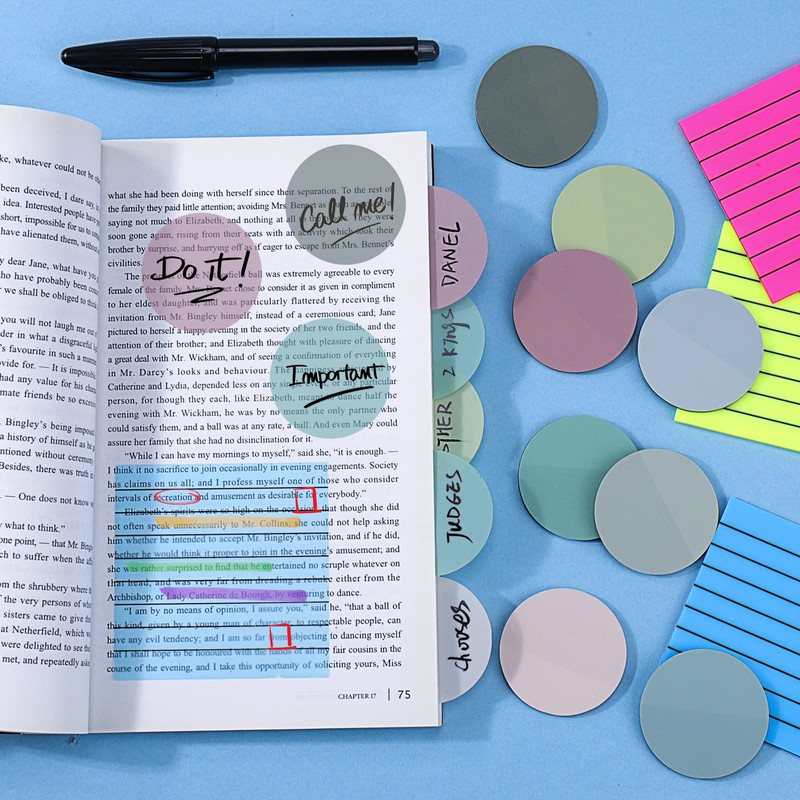 ke, whatever could not be othe
been deceived, I dare say,
idea. Interested people have
short, impossible for us to
have alienated them, without
y dear Jane, what have you
ho have probably been con
we shall be obliged to thin
you will not laugh me out
der in what a disgraceful
's favourite in such a manne
vide for. — It is impossible
had any value for his cha
mate friends be so excess
Bingley's being impos
a history of himself as he
entioned without ceremony
Besides, there was truth
. — One does not know
what to think."
one point, — that Mr. Bing
ch to suffer when the affa
om the shrubbery where
f the very persons of who
sisters came to give the
at Netherfield, which w
were delighted to see the
met, and repeatedly aske
what she had been doing with herself since their separation. To the rest of
the family they paid little attention; avoiding Mrs. Bennet as much as
saying not much to Elizabeth, and nothing at all to the others. They were
soon gone again, rising from their seats with an activity which took their
brother by surprise, and hurrying off as if eager to escape from Mrs. Bennet's
civilities.
The prospect of the Netherfield ball was extremely agreeable to every
female of the family. Mrs. Bennet chose to consider it as given in compliment
to her eldest daughter, and was particularly flattered by receiving the
invitation from Mr. Bingley himself, instead of a ceremonious card; Jane
pictured to herself a happy evening in the society of her two friends, and the
attention of their brother; and Elizabeth thought with pleasure of dancing
a great deal with Mr. Wickham, and of seeing a confirmation of everything
in Mr. Darcy's looks and behaviour. The happiness anticipated by
Catherine and Lydia, depended less on any single event, or any particular
person, for though they each, like Elizabeth, meant to dance half the
evening with Mr. Wickham, he was by no means the only partner who
could satisfy them, and a ball was at any rate, a ball. And even Mary could
assure her family that she had no disinclination for it.
"While I can have my mornings to myself," said she, "it is enough. —
I think it no sacrifice to join occasionally in evening engagements. Society
has claims on us all; and I profess myself one of those who consider
intervals of recreation and amusement as desirable for everybody."
Elizabeth's spirits were so high on the occasion, that though she did
not often speak unnecessarily to Mr. Collins, she could not help asking
him whether he intended to accept Mr. Bingley's invitation, and if he did,
whether he would think it proper to join in the evening's amusement; and
she was rather surprised to find that he entertained no scruple whatever on
that head, and was very far from dreading a rebuke either from the
Archbishop, or Lady Catherine de Bourgh, by venturing to dance.
"I am by no means of opinion, I assure you," said he, "that a ball of
this kind, given by a young man of character, to respectable people, can
have any evil tendency; and I am so far from objecting to dancing myself
that I shall hope to be honoured with the hands of all my fair cousins in the
course of the evening, and I take this opportunity of soliciting yours, Miss
CHAPTER 17 | 75
Call me!
Do it!
Important
DANEL
2 Kings
THER
JUDGES
chooses